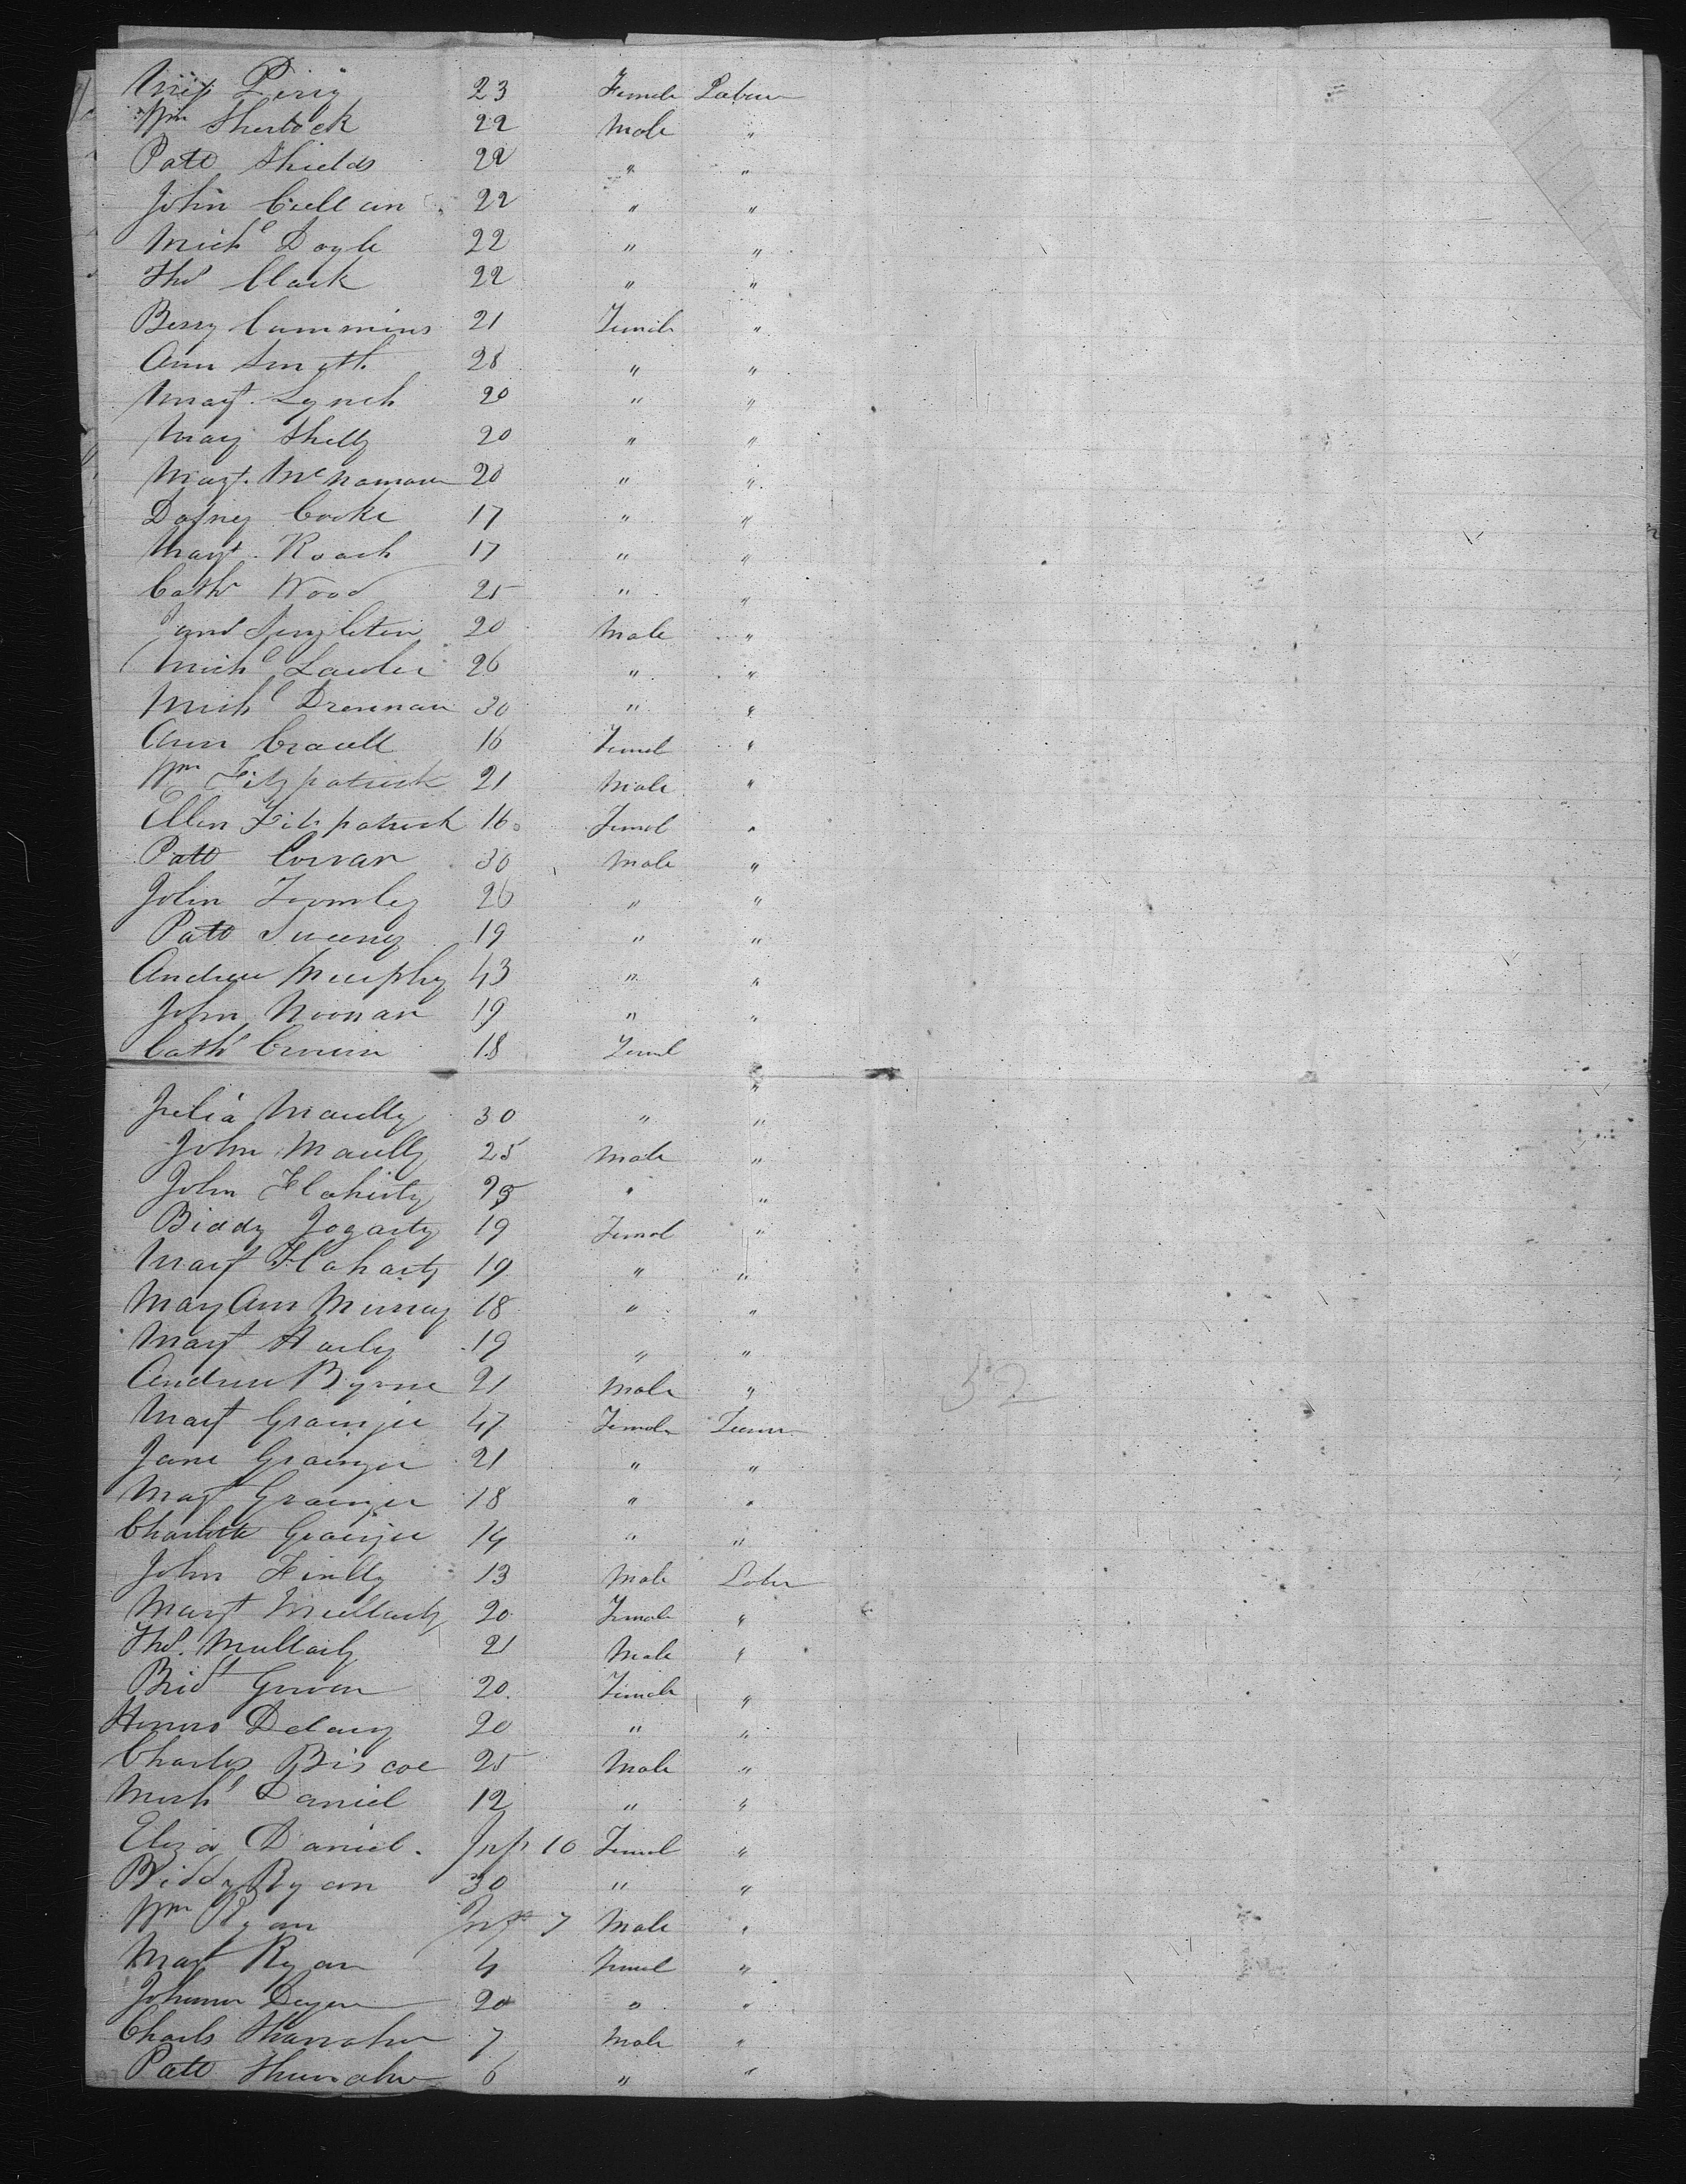 Perry 23 Female Labour
Wm Sherlock 22 Male "
Patt Shields 22 " "
John Cullan 22 " "
Michl Doyle 22 " "
Thos Clark 22 " "
Bessy Cummins 21 Female "
Ann Smyth 28 " "
Margt Lynch 20 " "
Mary Shelly 20 " "
Margt. McNamara 20 " "
Dafney Cooke 17 " "
Margt. Roach 17 " "
Cathe Wood 25 " "
Singleton 20 Male "
Michl Lawler 26 " "
Michl Drennan 30 " "
Ann 16 Femal "
Wm Fitzpatrick 21 Male "
Ellen Fitzpatrick 16 Femal "
Patt Corran 30 Male "
John 26 " "
Patt Sweeny 19 " "
Andrew Murphy 43 " "
John Noonan 19 " "
Cathe Cronin 18 Femal "
Julia Maully 30 " "
John Maully 25 Male "
John Flaherty " "
Biddy Fogarty 19 Femal "
Margt Flaharty 19 " "
Mary Ann Murray 18 " "
Margt Harly 19 " "
Andrew Byrne 21 Male "
Margt Grainger 47 Female
Jane Grainger 21 " "
Margt Grainger 18 " "
Charlotte Grainger 14 " "
John Finlly 13 Male Labr
Margt Mullarly 20 Female "
Thos. Mullarly 21 Male "
Bridt 20 Female "
Delany 20 " "
Charles Biscoe 25 Male "
Michl Daniel 12 " "
Eliza Daniel. Inft 10 Femal "
Biddy Ryan 30 " "
Wm Ryan Inft 7 Male "
Margt Ryan 4 Femal "
Johanna 20 " "
Charls 7 Male "
Patt 6 " "
52